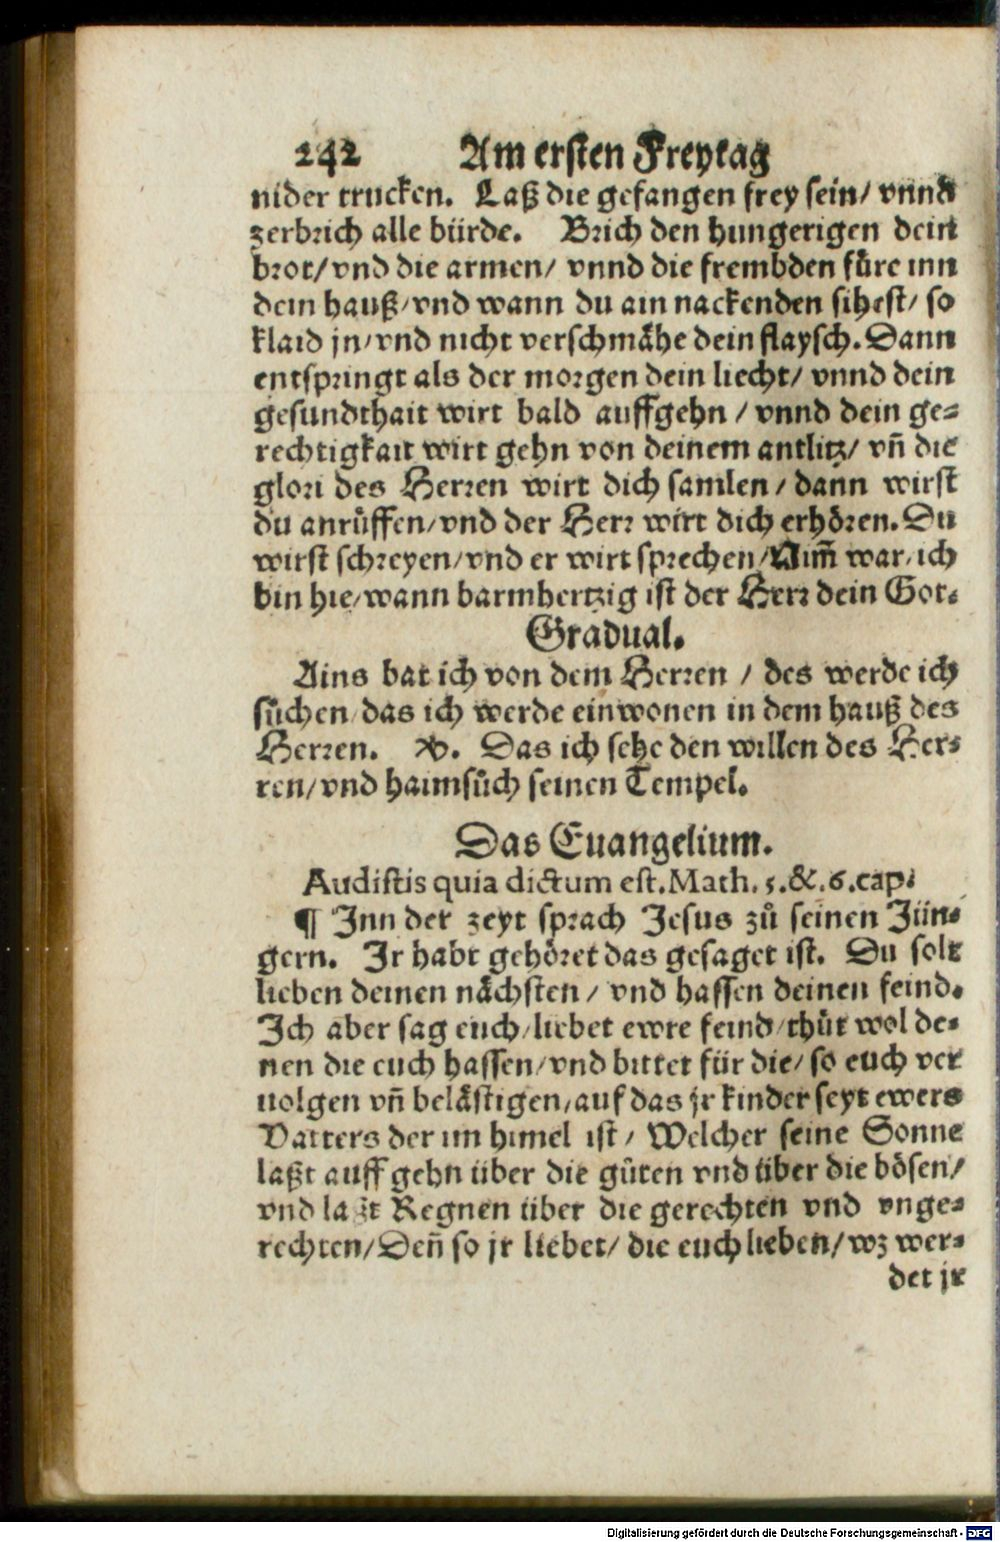 242 Am ersten Freytag
nider trucken. Laß die gefangen frey sein/ vnnd
zerbrich alle bürde. Brich den hungerigen dein
brot/vnd die armen/ vnnd die frembden fůre inn
dein hauß/vnd wann du ain nackenden sihest/ so
klaid jn/vnd nicht verschmåhe dein flaysch. Dann
entspringt als der morgen dein liecht/ vnnd dein
gesundthait wirt bald auffgehn / vnnd dein ge-
rechtigkait wirt gehn von deinem antlitz/ vñ die
glori des Herren wirt dich samlen / dann wirst
du anrůffen/vnd der Herr wirt dich erhôren. Du
wirst schreyen/vnd er wirt sprechen/Nim̃ war/ich
bin hie/wann barmhertzig ist der Herr dein Got.
Gradual.
Ains bat ich von dem Herren / des werde ich
sůchen/das ich werde einwonen in dem hauß des
Herren. ℣. Das ich sehe den willen des Her-
ren/vnd haimsůch seinen Tempel.
Das Euangelium.
Audistis quia dictum est. Math. 5. &. 6. cap.
¶ Inn der zeyt sprach Jesus zů seinen Jün-
gern. Ir habt gehôret das gesaget ist. Du solt
lieben deinen nåchsten / vnd hassen deinen feind.
Ich aber sag euch/liebet ewre feind/thůt wol de-
nen die euch hassen/vnd bittet für die/ so euch ver
uolgen vñ belåstigen/auf das jr kinder seyt ewers
Vatters der im himel ist / Welcher seine Sonne
laßt auff gehn über die gůten vnd über die bôsen/
vnd laßt Regnen über die gerechten vnd vnge-
rechten/Deñ so jr liebet/ die euch lieben/wz wer-
det jr
Digitalisierung gefördert durch die Deutsche Forschungsgemeinschaft - DFG